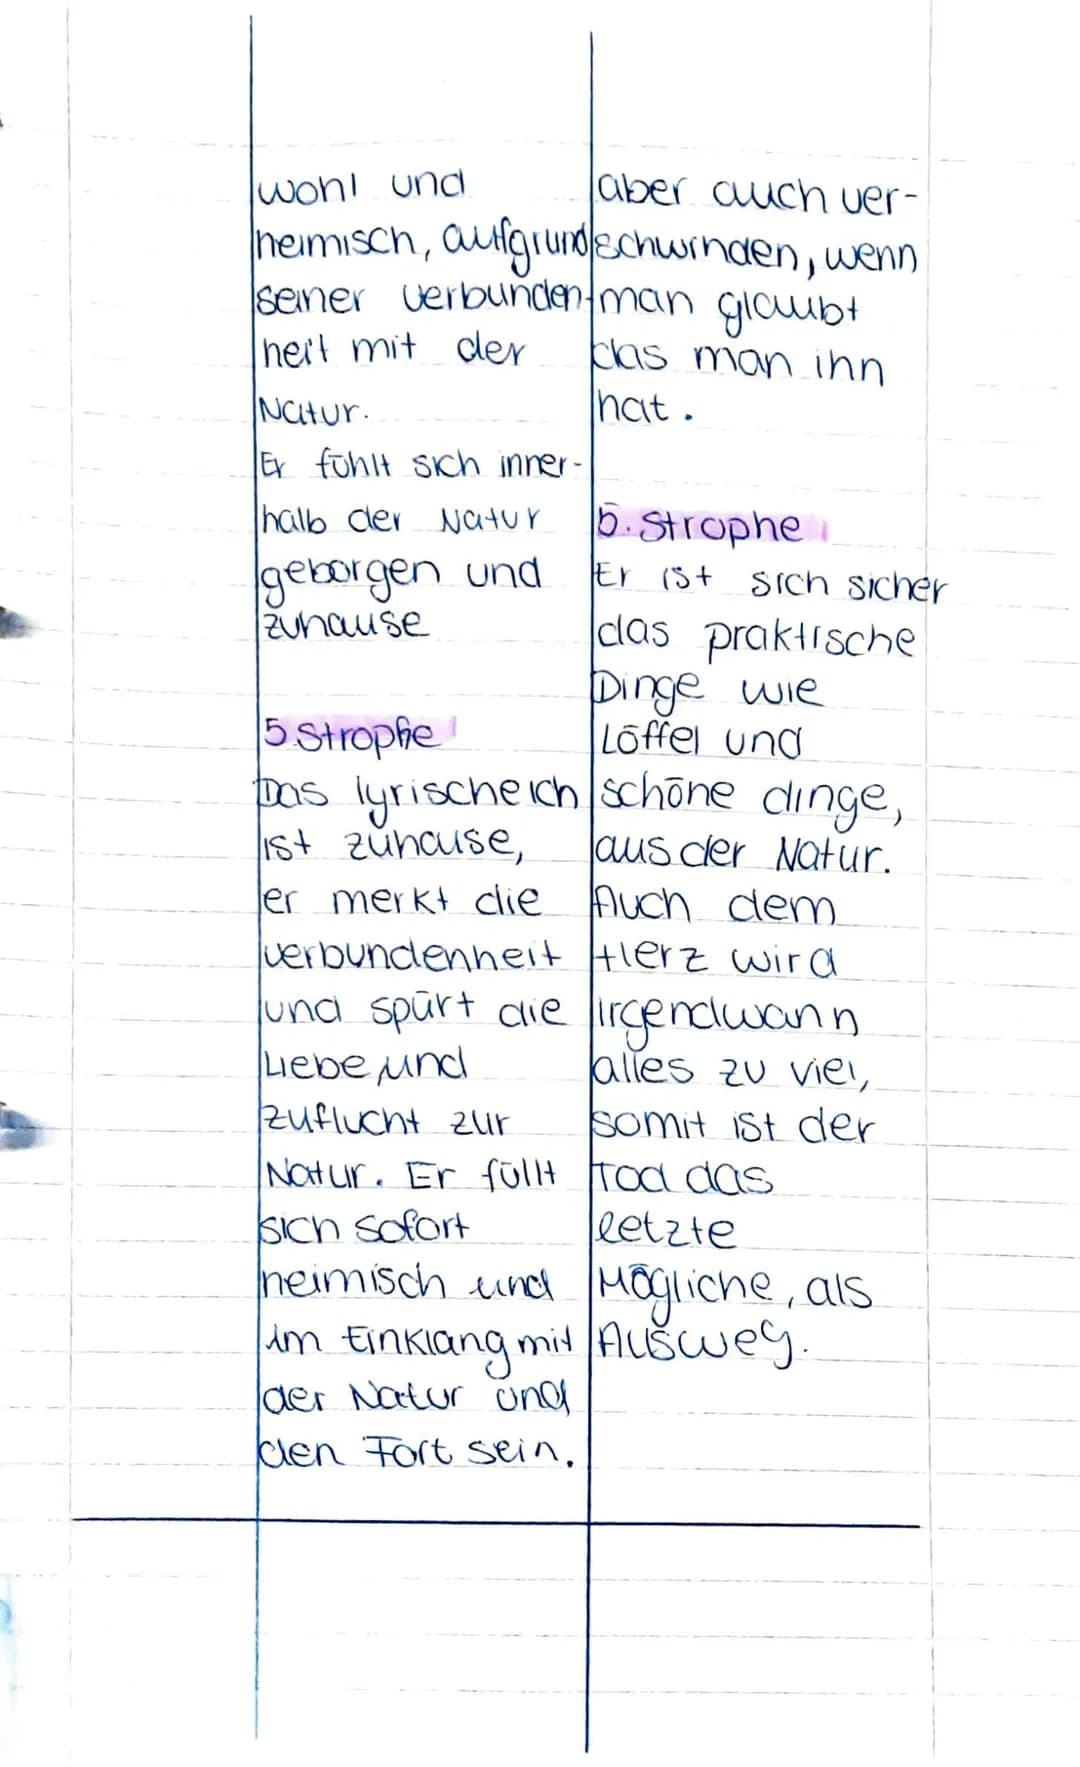 wohl und
heimisch, aufgrund
seiner verbunden-
heit mit der
Natur.
Er fühlt sich inner-
halb der Natur
geborgen und
zuhause
5. Strophe
Das lyrische ich
ist zuhause,
er merkt die
verbundenheit
und spürt die
Liebe und
zuflucht zur
Natur. Er füllt
sich sofort
heimisch und
im Einklang mit
der Natur und
den Fort sein.
aber auch ver-
schwinden, wenn
man glaubt
das man ihn
hat.
5. Strophe
Er ist sich sicher
das praktische
Dinge wie
Löffel und
schöne dinge,
aus der Natur.
Auch dem
Herz wird
irgendwann
alles zu viel,
somit ist der
Tod das
letzte
Mögliche, als
Ausweg.